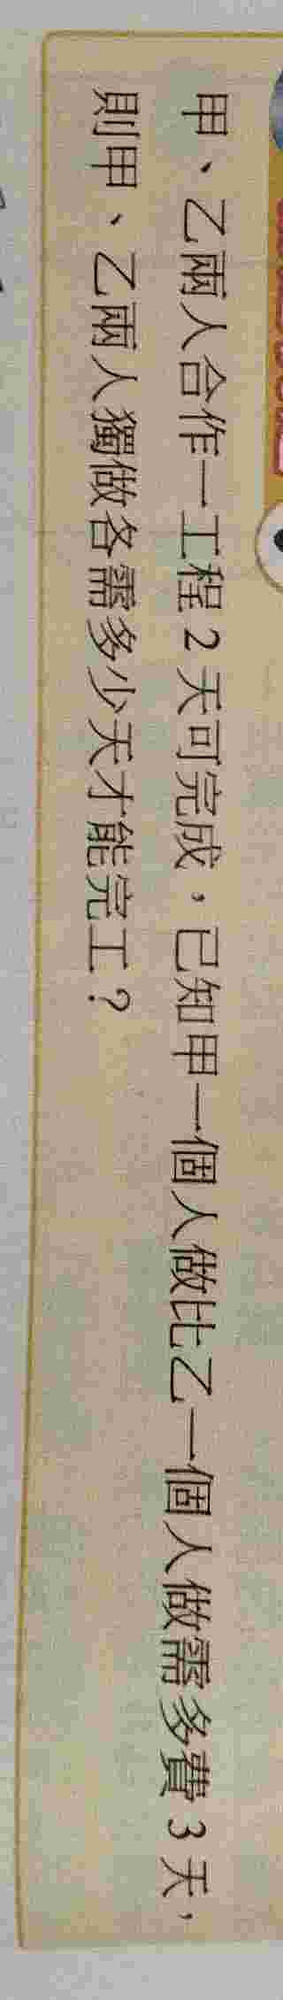 甲、乙兩人合作一工程 2 天可完成，已知甲一個人做比乙一個人做需多費 3 天，
則甲、乙兩人獨做各需多少天才能完工？